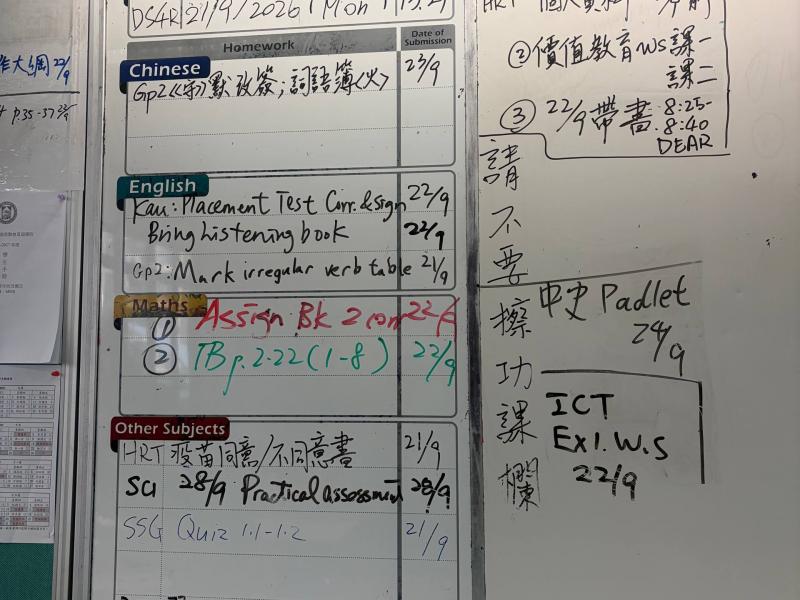 作大綱 22/9
p.35-37 23/9
DS4R 21/9/2026 Mon
Homework
Date of Submission
Chinese
Gp2《守》默改簽；詞語簿<火> 23/9
English
Kau: Placement Test Corr. & sign 22/9
Bring Listening book 22/9
Gp2: Mark irregular verb table 21/9
Maths
① Assign Bk 2 corr 22/9
② TB p.2.22 (1-8) 22/9
Other Subjects
HRT 疫苗同意/不同意書 21/9
Sci 28/9 Practical assessment 28/9
SSG Quiz 1.1-1.2 21/9
HRT 個人資料
② 價值教育WS 課一
課二
③ 22/9 帶書 8:25-
8:40
DEAR
請不要擦功課欄
中史 Padlet
24/9
ICT
Ex1. W.S
22/9